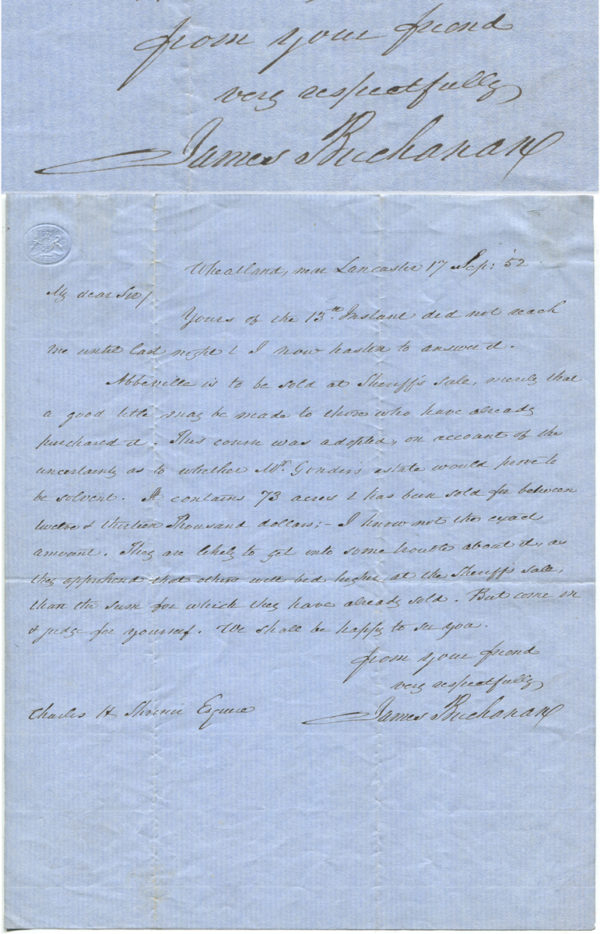 from your friend
very respectfully
James Buchanan
Wheatland, near Lancaster 17 Sep: '52
My dear Sir/
Yours of the 13th Instant did not reach
me until last night & I now hasten to answer it.
Abbeville is to be sold at Sheriff's sale, merely that
a good title may be made to those who have already
purchased it. This course was adopted, on account of the
uncertainty as to whether Mr. Gonder's estate would prove to
be solvent. It contains 73 acres & has been sold for between
twelve & thirteen thousand dollars; - I know not the exact
amount. They are likely to get into some trouble about it, as
they apprehend that others will bid higher at the Sheriff's sale,
than the sum for which they have already sold. But come in
& judge for yourself. We shall be happy to see you.
from your friend
very respectfully
James Buchanan
Charles H Esquire